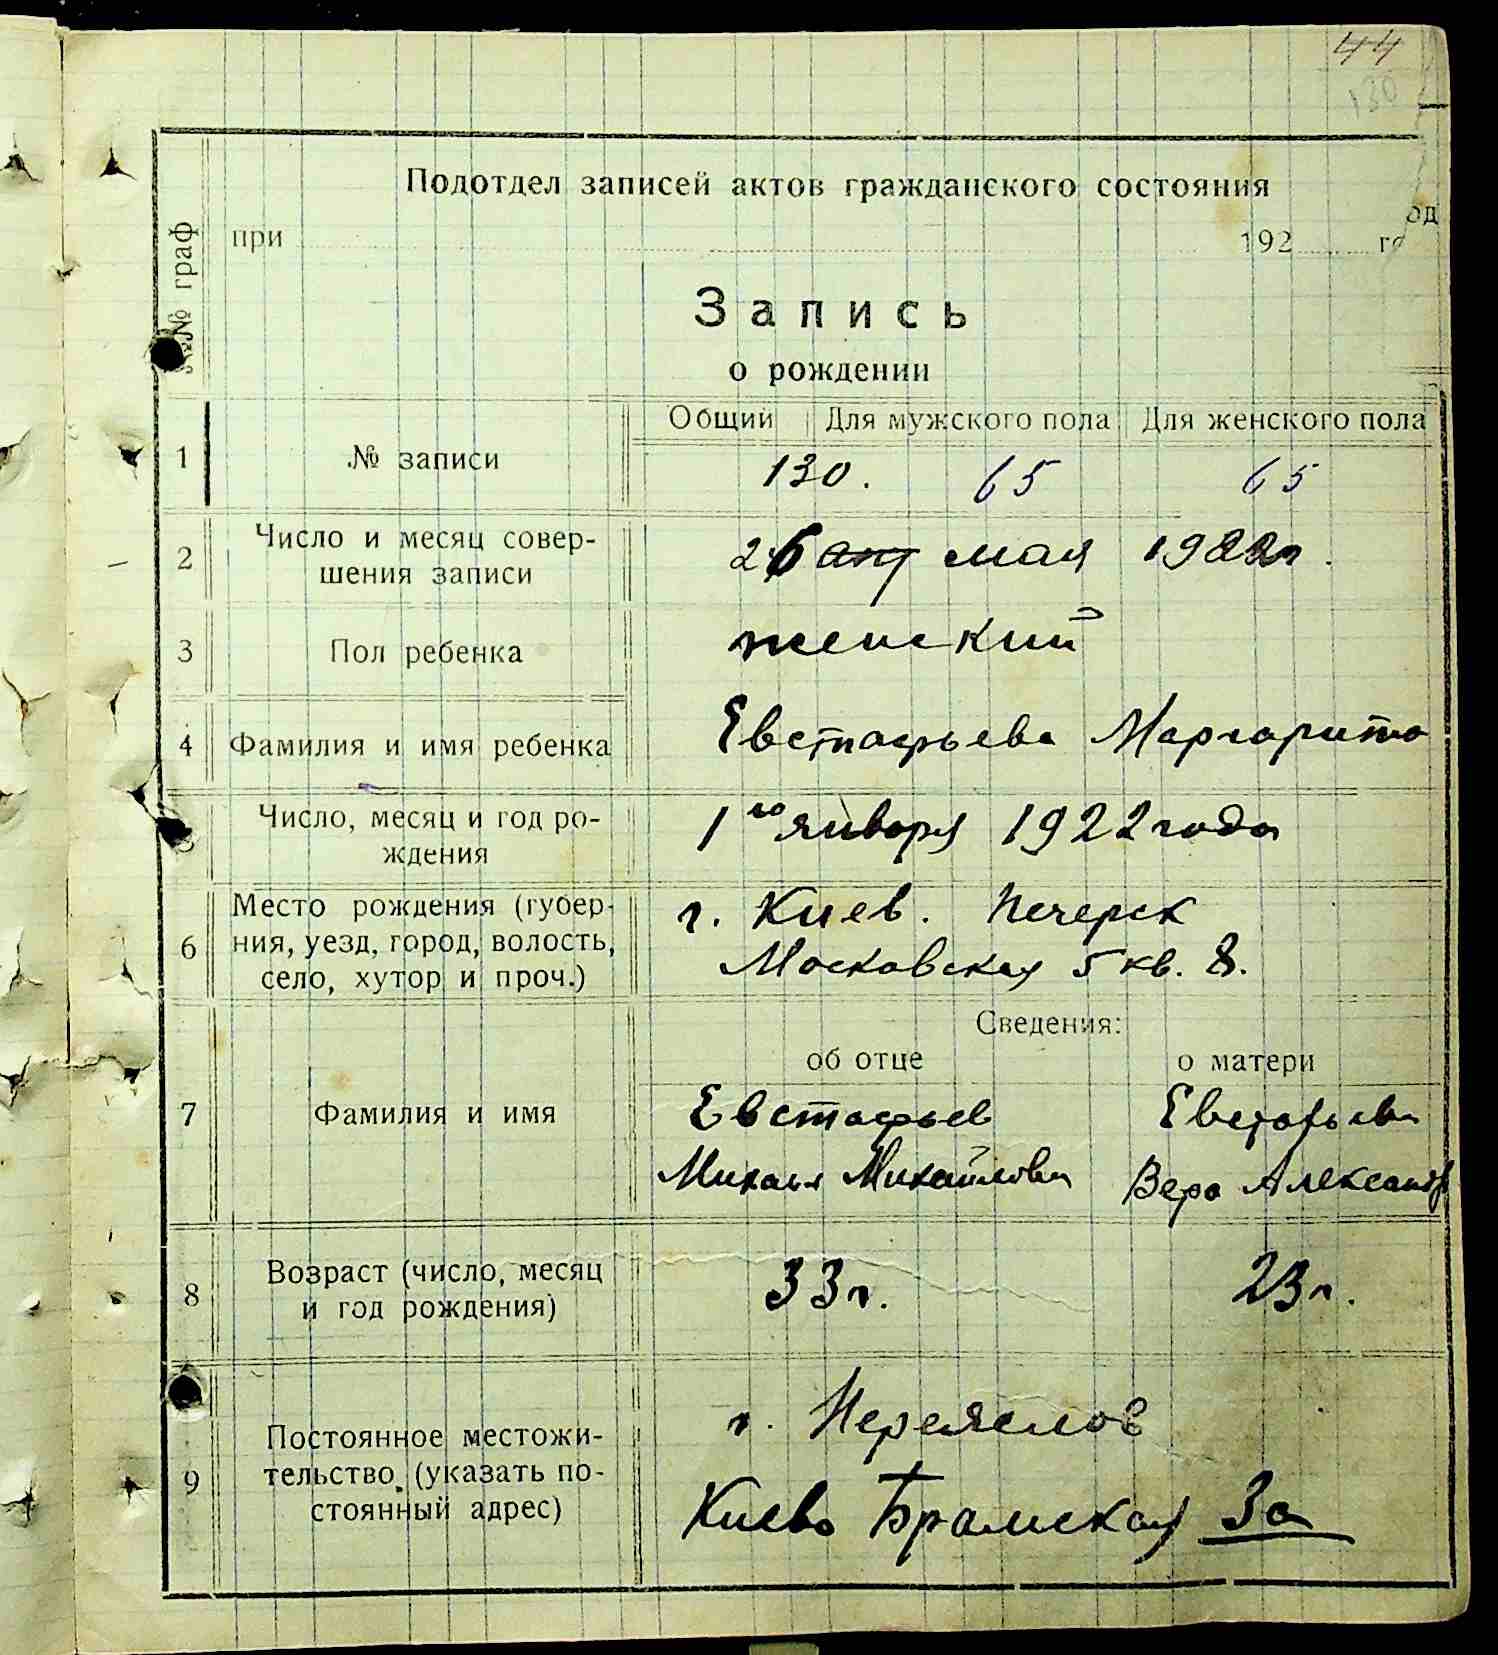 44
130
Подотдел записей актов гражданского состояния
№№ граф
при 192 го
од
Запись
о рождении
Общий Для мужского пола Для женского пола
1 № записи 130. 65 65
2 Число и месяц совер-
шения записи
26 мая 1922 г.
3 Пол ребенка женский
4 Фамилия и имя ребенка Евстафьева Маргарита
5 Число, месяц и год ро-
ждения
1го января 1922 года
6 Место рождения (губер-
ния, уезд, город, волость,
село, хутор и проч.)
г. Киев. Печерск
Московская 5 кв. 8.
Сведения:
об отце о матери
7 Фамилия и имя Евстафьев Евстафьева
Михаил Михайлович Вера Александр
8 Возраст (число, месяц
и год рождения)
33 г. 23 г.
9 Постоянное местожи-
тельство (указать по-
стоянный адрес)
г. Переяслов
Киево Брамская 3а